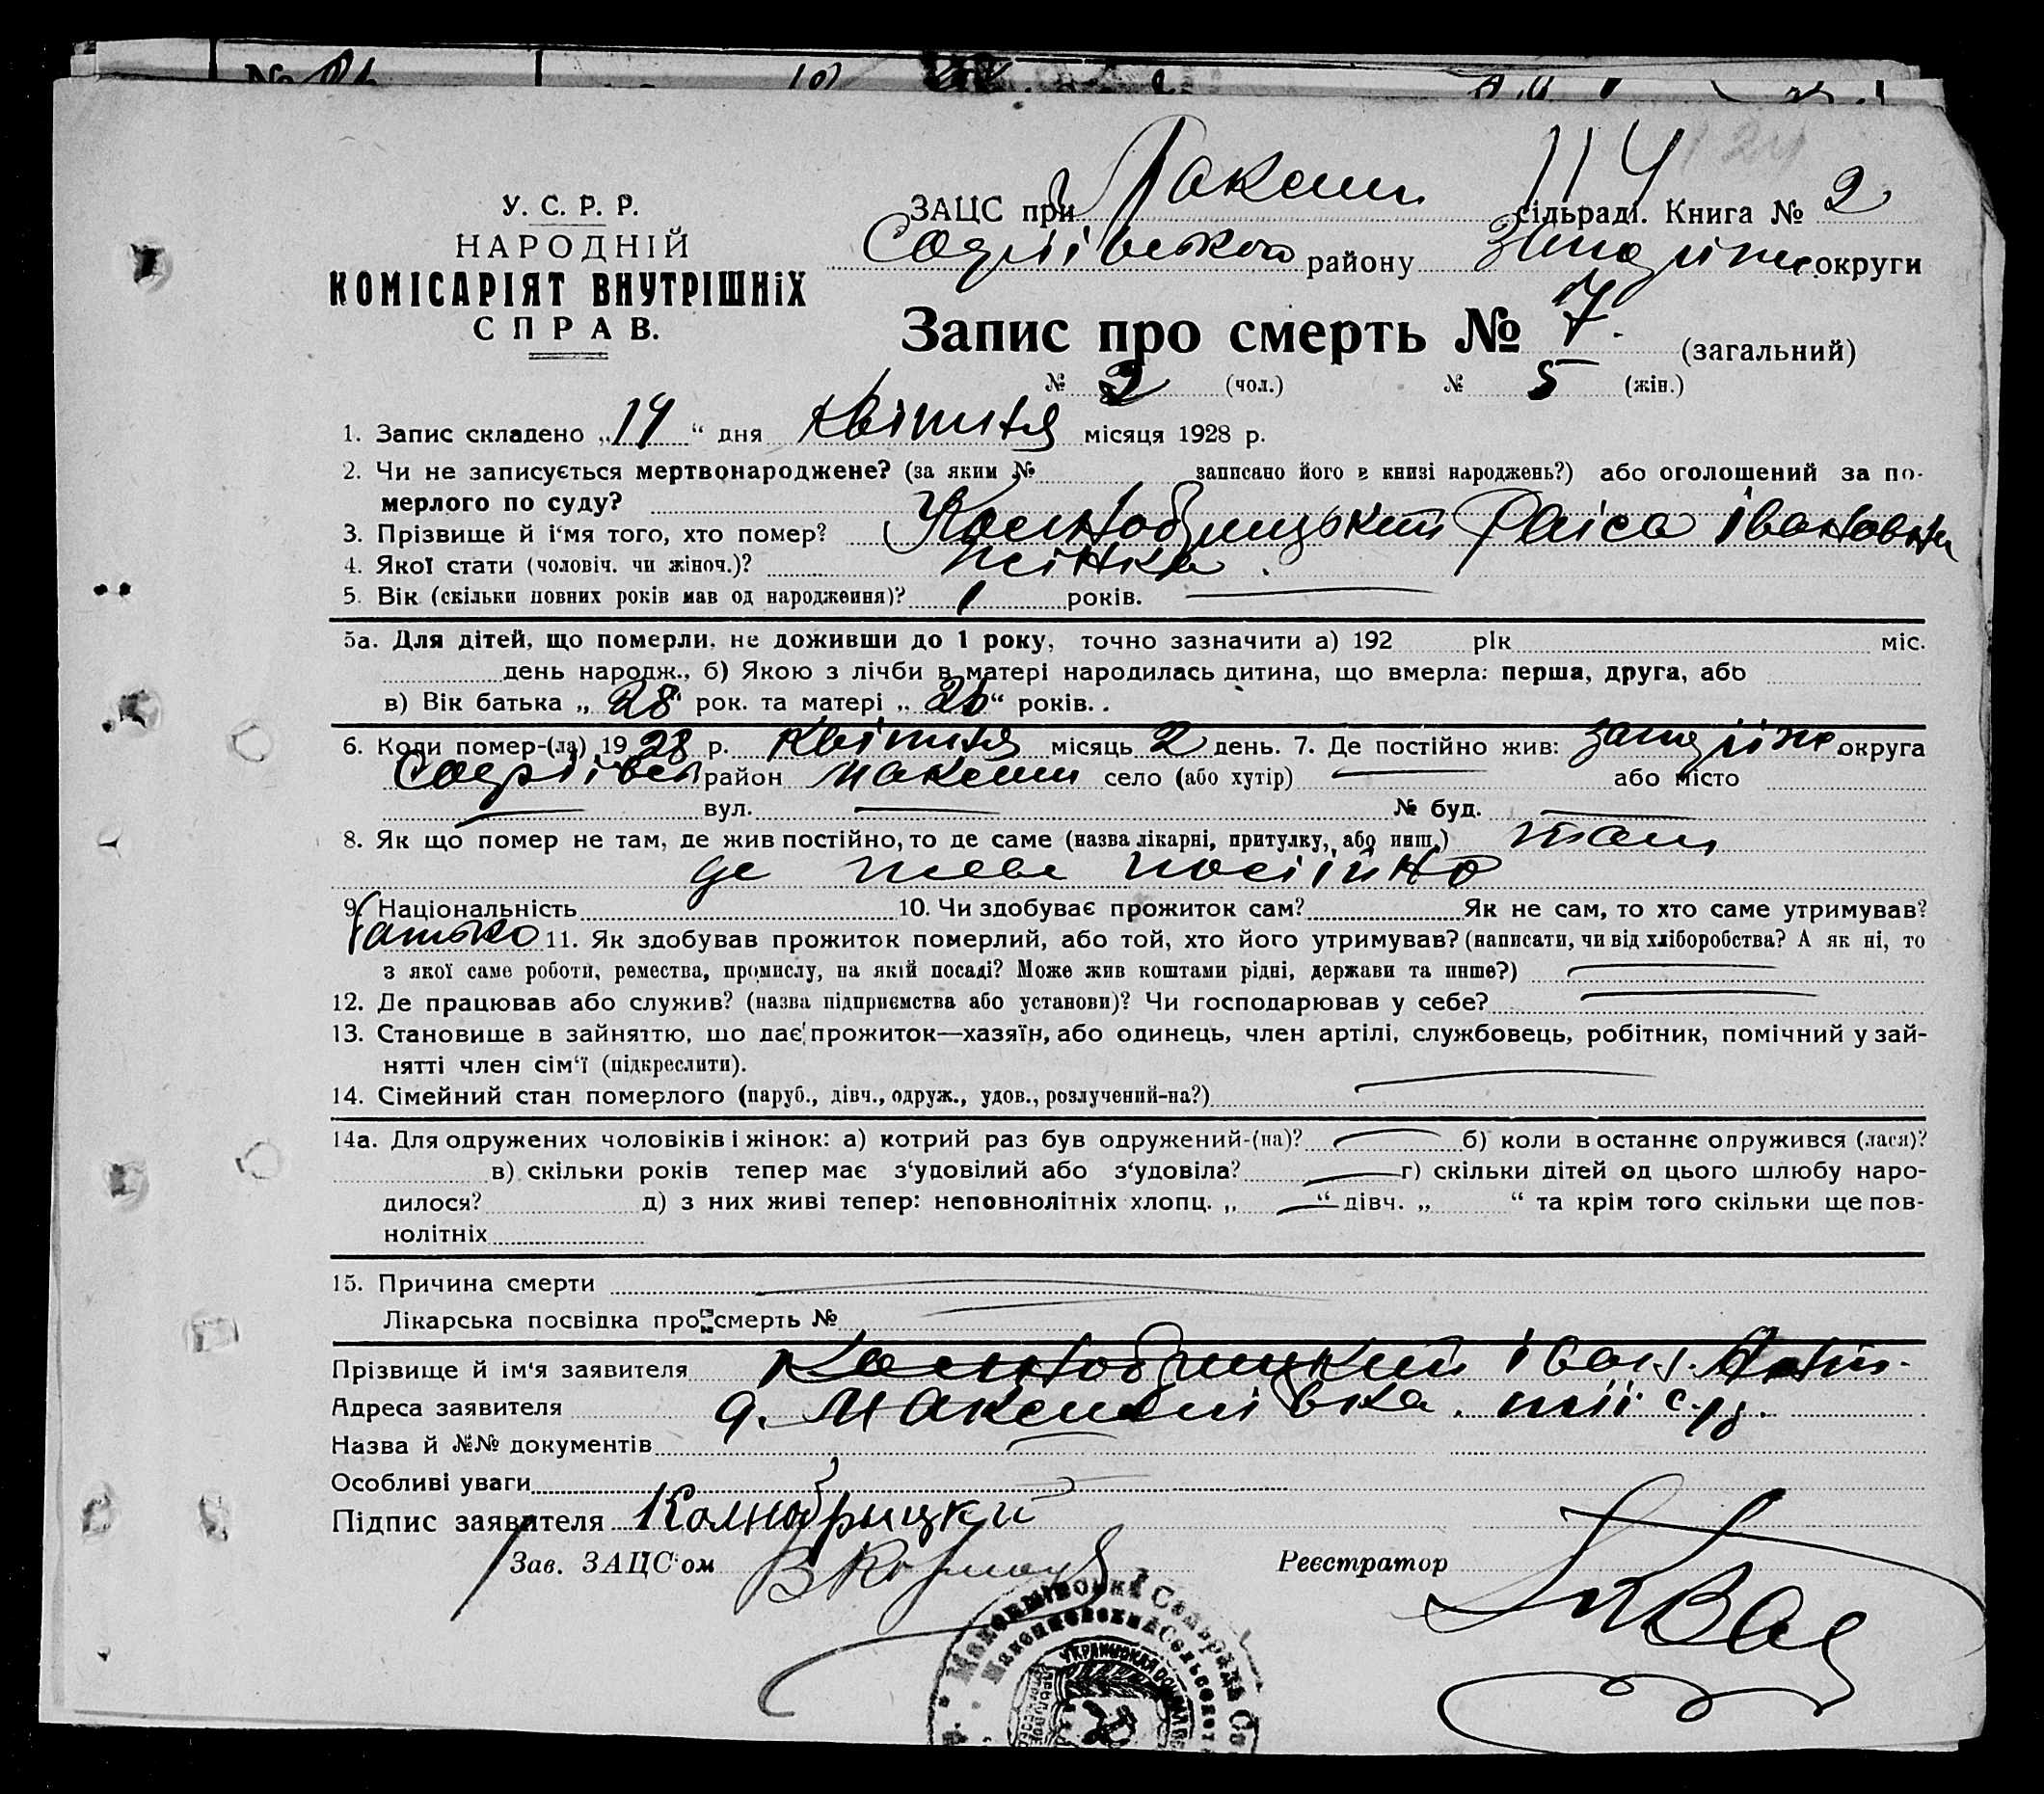 114
У. С. Р. Р.
НАРОДНІЙ
КОМІСАРІЯТ ВНУТРІШНіХ
СПРАВ.
ЗАЦС при Максим. сільраді. Книга № 2
Софіївського району Запоріж. округи
Запис про смерть № 7. (загальний)
№ 2 (чол.) № 5 (жін.)
1. Запис складено „14“ дня квітня місяця 1928 р.
2. Чи не записується мертвонароджене? (за яким № записано його в книзі народжень?) або оголошений за по-
мерлого по суду?
3. Прізвище й і‘мя того, хто помер? Раїса Івановна
4. Якої стати (чоловіч. чи жіноч.)? жінка.
5. Вік (скільки повних років мав од народження)? 1 років.
5а. Для дітей, що померли, не доживши до 1 року, точно зазначити а) 192 рік міс.
день народж., б) Якою з лічби в матері народилась дитина, що вмерла: перша, друга, або
в) Вік батька „28“ рок. та матері „26“ років. .
6. Коли помер-(ла) 1928 р. квітня місяць 2 день. 7. Де постійно жив: Запоріж. округа
Софіївськ район Максим село (або хутір) — або місто
— вул. — № буд. —
8. Як що помер не там, де жив постійно, то де саме (назва лікарні, притулку, або инш.) там
де живе постійно
9. Національність 10. Чи здобуває прожиток сам? Як не сам, то хто саме утримував?
батько 11. Як здобував прожиток померлий, або той, хто його утримував? (написати, чи від хліборобства? А як ні, то
з якої саме роботи, ремества, промислу, на якій посаді? Може жив коштами рідні, держави та инше?) —
12. Де працював або служив? (назва підприємства або установи)? Чи господарював у себе? —
13. Становище в зайняттю, що дає прожиток—хазяїн, або одинець, член артілі, службовець, робітник, помічний у зай-
нятті член сім‘ї (підкреслити).
14. Сімейний стан померлого (паруб., дівч., одруж., удов., розлучений-на?) —
14а. Для одружених чоловіків і жінок: а) котрий раз був одружений-(на)? — б) коли в останнє одружився (лася)?
в) скільки років тепер має з‘удовілий або з‘удовіла? — г) скільки дітей од цього шлюбу наро-
дилося? д) з них живі тепер: неповнолітніх хлопц. „—“ дівч. „ “ та крім того скільки ще пов-
нолітніх
15. Причина смерти —
Лікарська посвідка про смерть № —
Прізвище й ім‘я заявителя Іван
Адреса заявителя с.р.
Назва й №№ документів —
Особливі уваги —
Підпис заявителя
Зав. ЗАЦС‘ом
Реєстратор